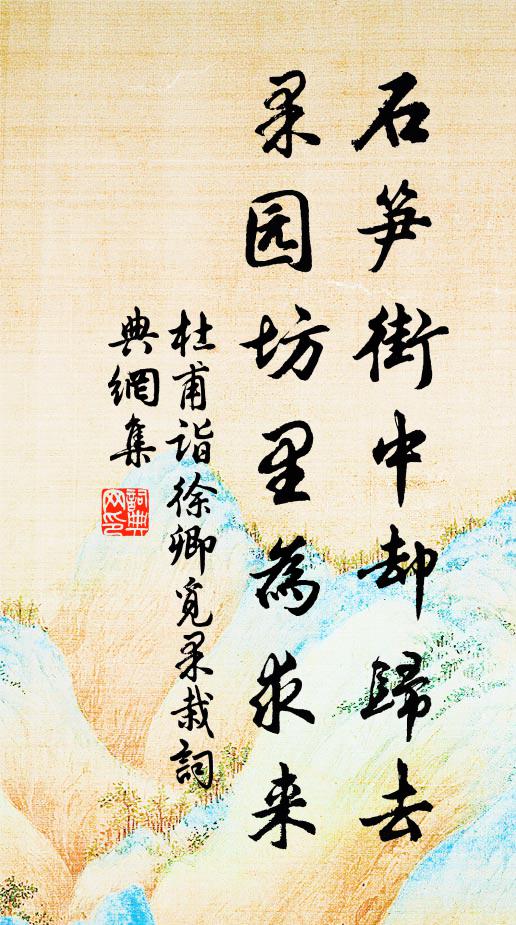 石笋街中却歸去
果园坊里為求来
杜甫詣徐卿覓果栽詞
典網集
詞典
网印